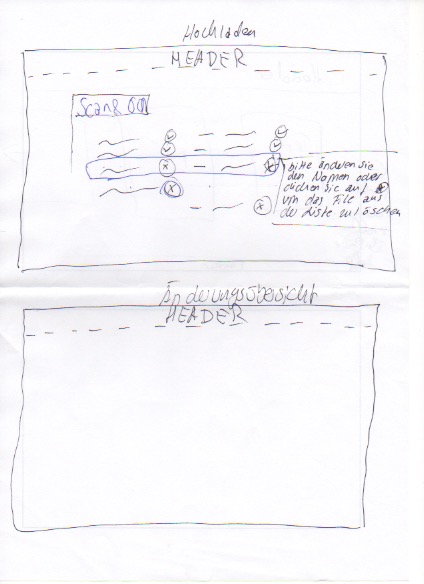 Hochladen
HEADER
bitte ändern sie
den Namen oder
clicken sie auf
um das File aus
der Liste zu löschen
Änderungsübersicht
HEADER